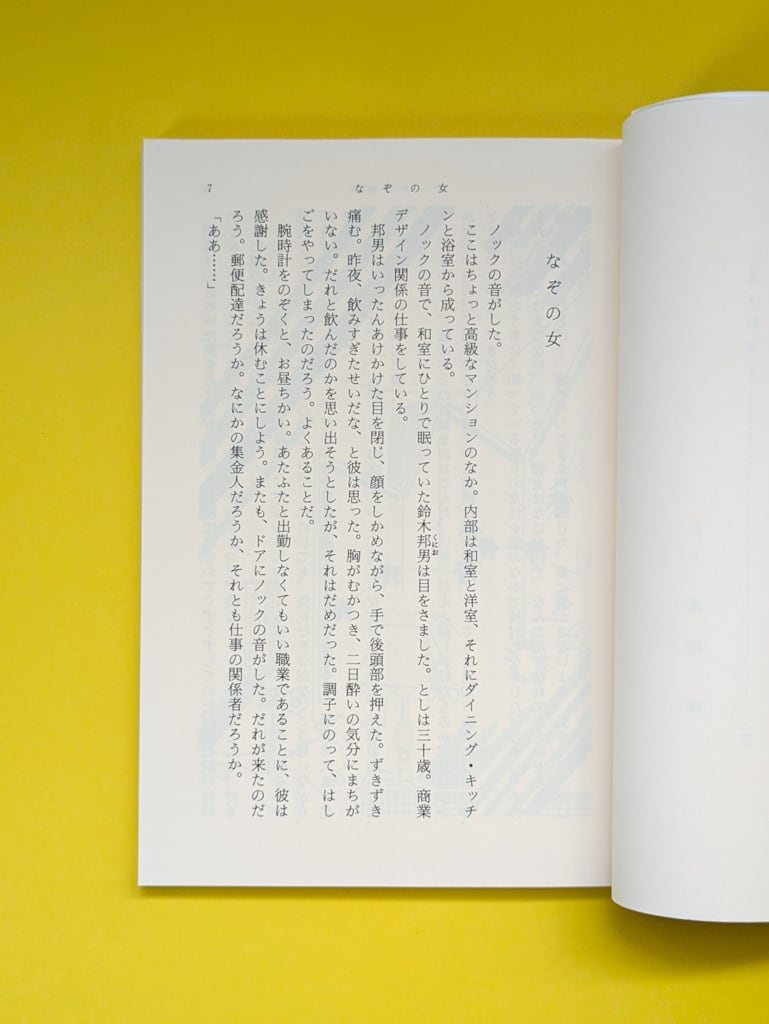 7
なぞの女
なぞの女
ノックの音がした。
ここはちょっと高級なマンションのなか。内部は和室と洋室、それにダイニング・キッチ
ンと浴室から成っている。
ノックの音で、和室にひとりで眠っていた鈴木邦男は目をさました。としは三十歳。商業
くにお
デザイン関係の仕事をしている。
邦男はいったんあけかけた目を閉じ、顔をしかめながら、手で後頭部を押えた。ずきずき
痛む。昨夜、飲みすぎたせいだな、と彼は思った。胸がむかつき、二日酔いの気分にまちが
いない。だれと飲んだのかを思い出そうとしたが、それはだめだった。調子にのって、はし
ごをやってしまったのだろう。よくあることだ。
腕時計をのぞくと、お昼ちかい。あたふたと出勤しなくてもいい職業であることに、彼は
感謝した。きょうは休むことにしよう。またも、ドアにノックの音がした。だれが来たのだ
ろう。郵便配達だろうか。なにかの集金人だろうか、それとも仕事の関係者だろうか。
「ああ……」